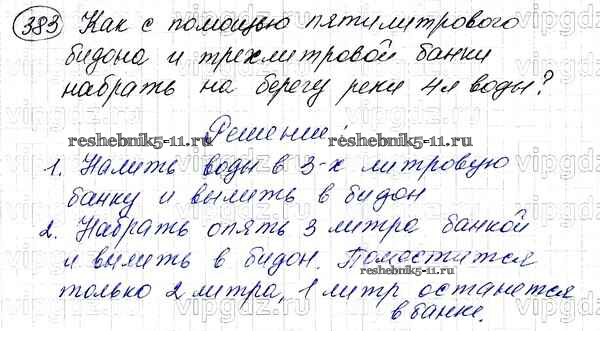 383 Как с помощью пятилитрового
бидона и трехлитровой банки
набрать на берегу реки 4л воды?
Решение:
reshebnik5-11.ru. reshebnik5-11.ru.
1. Налить воды в 3-х литровую
банку и вылить в бидон
2. Набрать опять 3 литра банкой
и вылить в бидон. Поместится
reshebnik5-11.ru
только 2 литра, 1 литр останется
в банке.
reshebnik5-11.ru